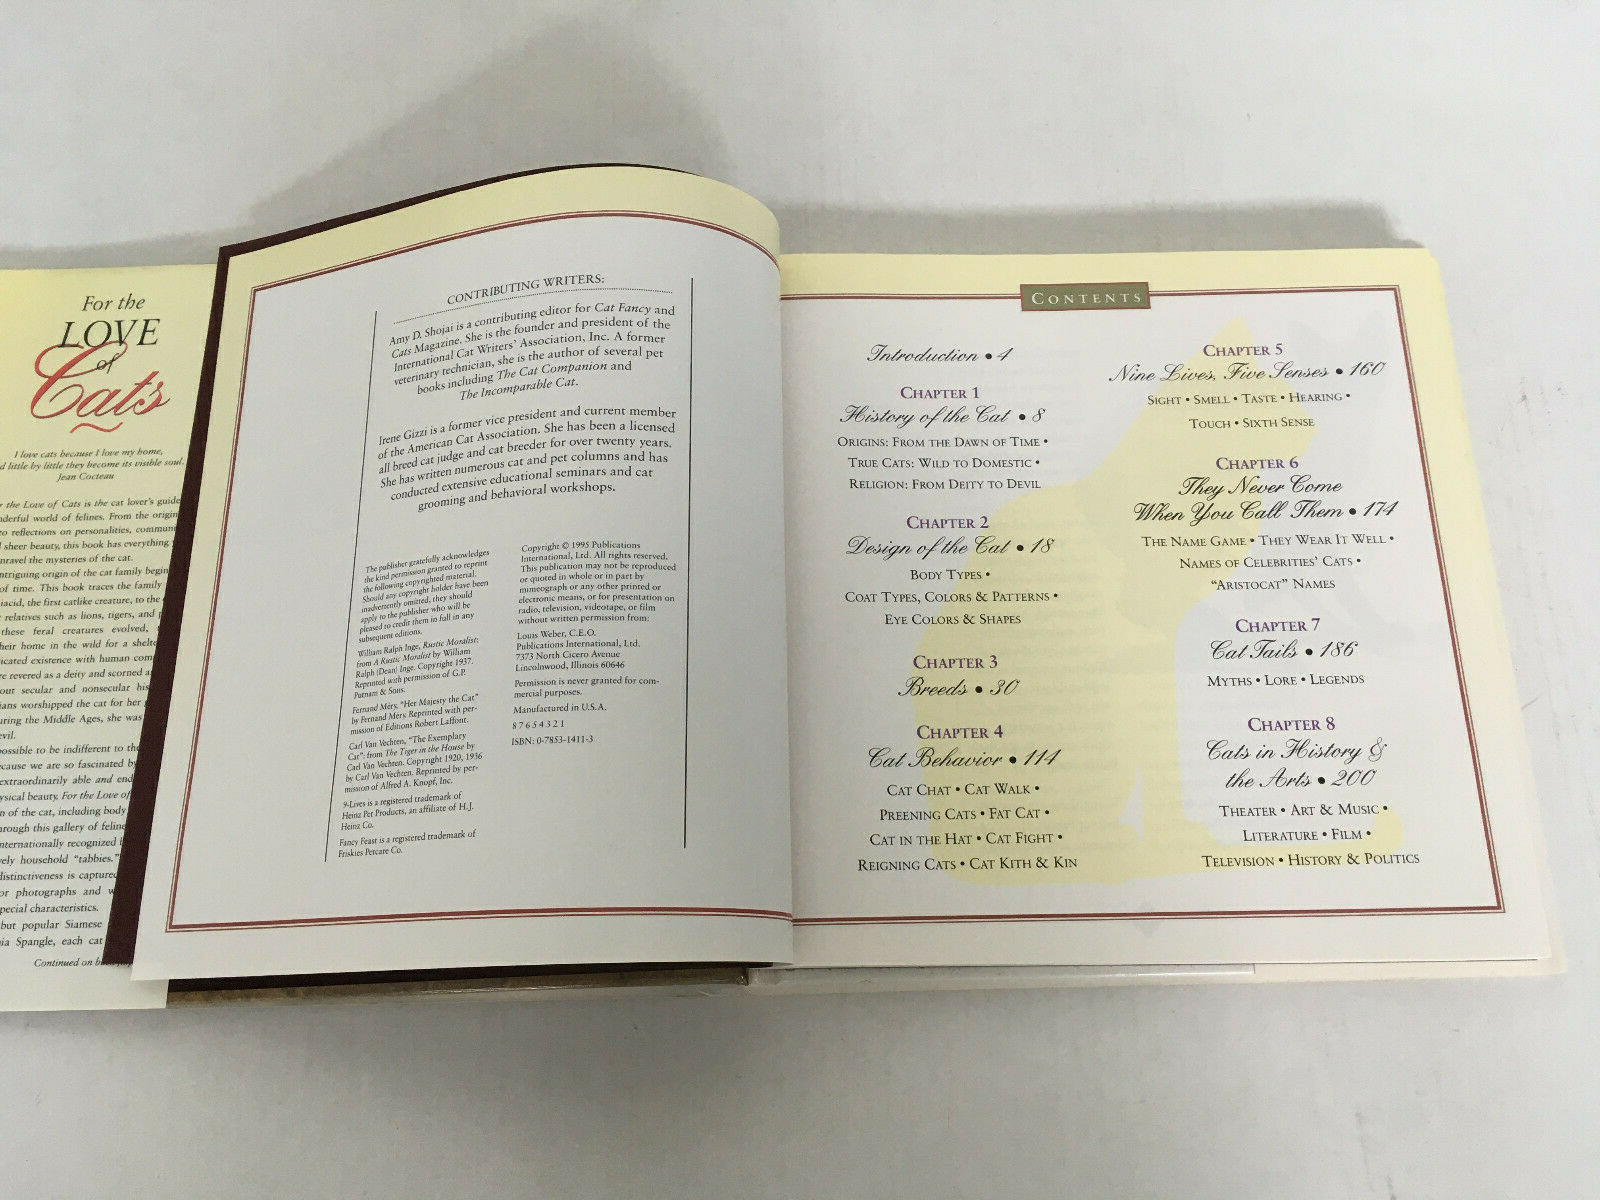 For the
LOVE
of
Cats
I love cats because I love my home,
little by little they become its visible soul.
Jean Cocteau
the Love of Cats is the cat lover's guide
world of felines. From the origin
to reflections on personalities,
sheer beauty, this book has everything
the mysteries of the cat.
origin of the cat family
of time. This book traces the family
the first catlike creature, to the
relatives such as lions, tigers, and
these feral creatures evolved,
home in the wild for a
existence with human
revered as a deity and scorned
secular and nonsecular
worshipped the cat for her
the Middle Ages, she was
to be indifferent to
we are so fascinated by
extraordinarily able and
beauty, For the Love of
of the cat, including body
this gallery of
recognized
household “tabbies.”
distinctiveness is
photographs and
special characteristics.
but popular Siamese
Spangle, each cat
Continued on
CONTRIBUTING WRITERS:
Amy D. Shojai is a contributing editor for Cat Fancy and
Cats Magazine. She is the founder and president of the
International Cat Writers' Association, Inc. A former
veterinary technician, she is the author of several pet
books including The Cat Companion and
The Incomparable Cat.
Irene Gizzi is a former vice president and current member
of the American Cat Association. She has been a licensed
all breed cat judge and cat breeder for over twenty years.
She has written numerous cat and pet columns and has
conducted extensive educational seminars and cat
grooming and behavioral workshops.
The publisher gratefully acknowledges
the kind permission granted to reprint
the following copyrighted material.
Should any copyright holder have been
inadvertently omitted, they should
apply to the publisher who will be
pleased to credit them in full in any
subsequent editions.
William Ralph Inge, Rustic Moralist:
from A Rustic Moralist by William
Ralph (Dean) Inge. Copyright 1937.
Reprinted with permission of G.P.
Putnam & Sons.
Fernand Méry, “Her Majesty the Cat”
by Fernand Méry. Reprinted with per-
mission of Editions Robert Laffont.
Carl Van Vechten, “The Exemplary
Cat”: from The Tiger in the House by
Carl Van Vechten. Copyright 1920, 1936
by Carl Van Vechten. Reprinted by per-
mission of Alfred A. Knopf, Inc.
9-Lives is a registered trademark of
Heinz Pet Products, an affiliate of H.J.
Heinz Co.
Fancy Feast is a registered trademark of
Friskies Petcare Co.
Copyright © 1995 Publications
International, Ltd. All rights reserved.
This publication may not be reproduced
or quoted in whole or in part by
mimeograph or any other printed or
electronic means, or for presentation on
radio, television, videotape, or film
without written permission from:
Louis Weber, C.E.O.
Publications International, Ltd.
7373 North Cicero Avenue
Lincolnwood, Illinois 60646
Permission is never granted for com-
mercial purposes.
Manufactured in U.S.A.
8 7 6 5 4 3 2 1
ISBN: 0-7853-1411-3
CONTENTS
Introduction • 4
CHAPTER 1
History of the Cat • 8
ORIGINS: FROM THE DAWN OF TIME •
TRUE CATS: WILD TO DOMESTIC •
RELIGION: FROM DEITY TO DEVIL
CHAPTER 2
Design of the Cat • 18
BODY TYPES •
COAT TYPES, COLORS & PATTERNS •
EYE COLORS & SHAPES
CHAPTER 3
Breeds • 30
CHAPTER 4
Cat Behavior • 114
CAT CHAT • CAT WALK •
PREENING CATS • FAT CAT •
CAT IN THE HAT • CAT FIGHT •
REIGNING CATS • CAT KITH & KIN
CHAPTER 5
Nine Lives, Five Senses • 160
SIGHT • SMELL • TASTE • HEARING •
TOUCH • SIXTH SENSE
CHAPTER 6
They Never Come
When You Call Them • 174
THE NAME GAME • THEY WEAR IT WELL •
NAMES OF CELEBRITIES' CATS •
“ARISTOCAT” NAMES
CHAPTER 7
Cat Tails • 186
MYTHS • LORE • LEGENDS
CHAPTER 8
Cats in History &
the Arts • 200
THEATER • ART & MUSIC •
LITERATURE • FILM •
TELEVISION • HISTORY & POLITICS